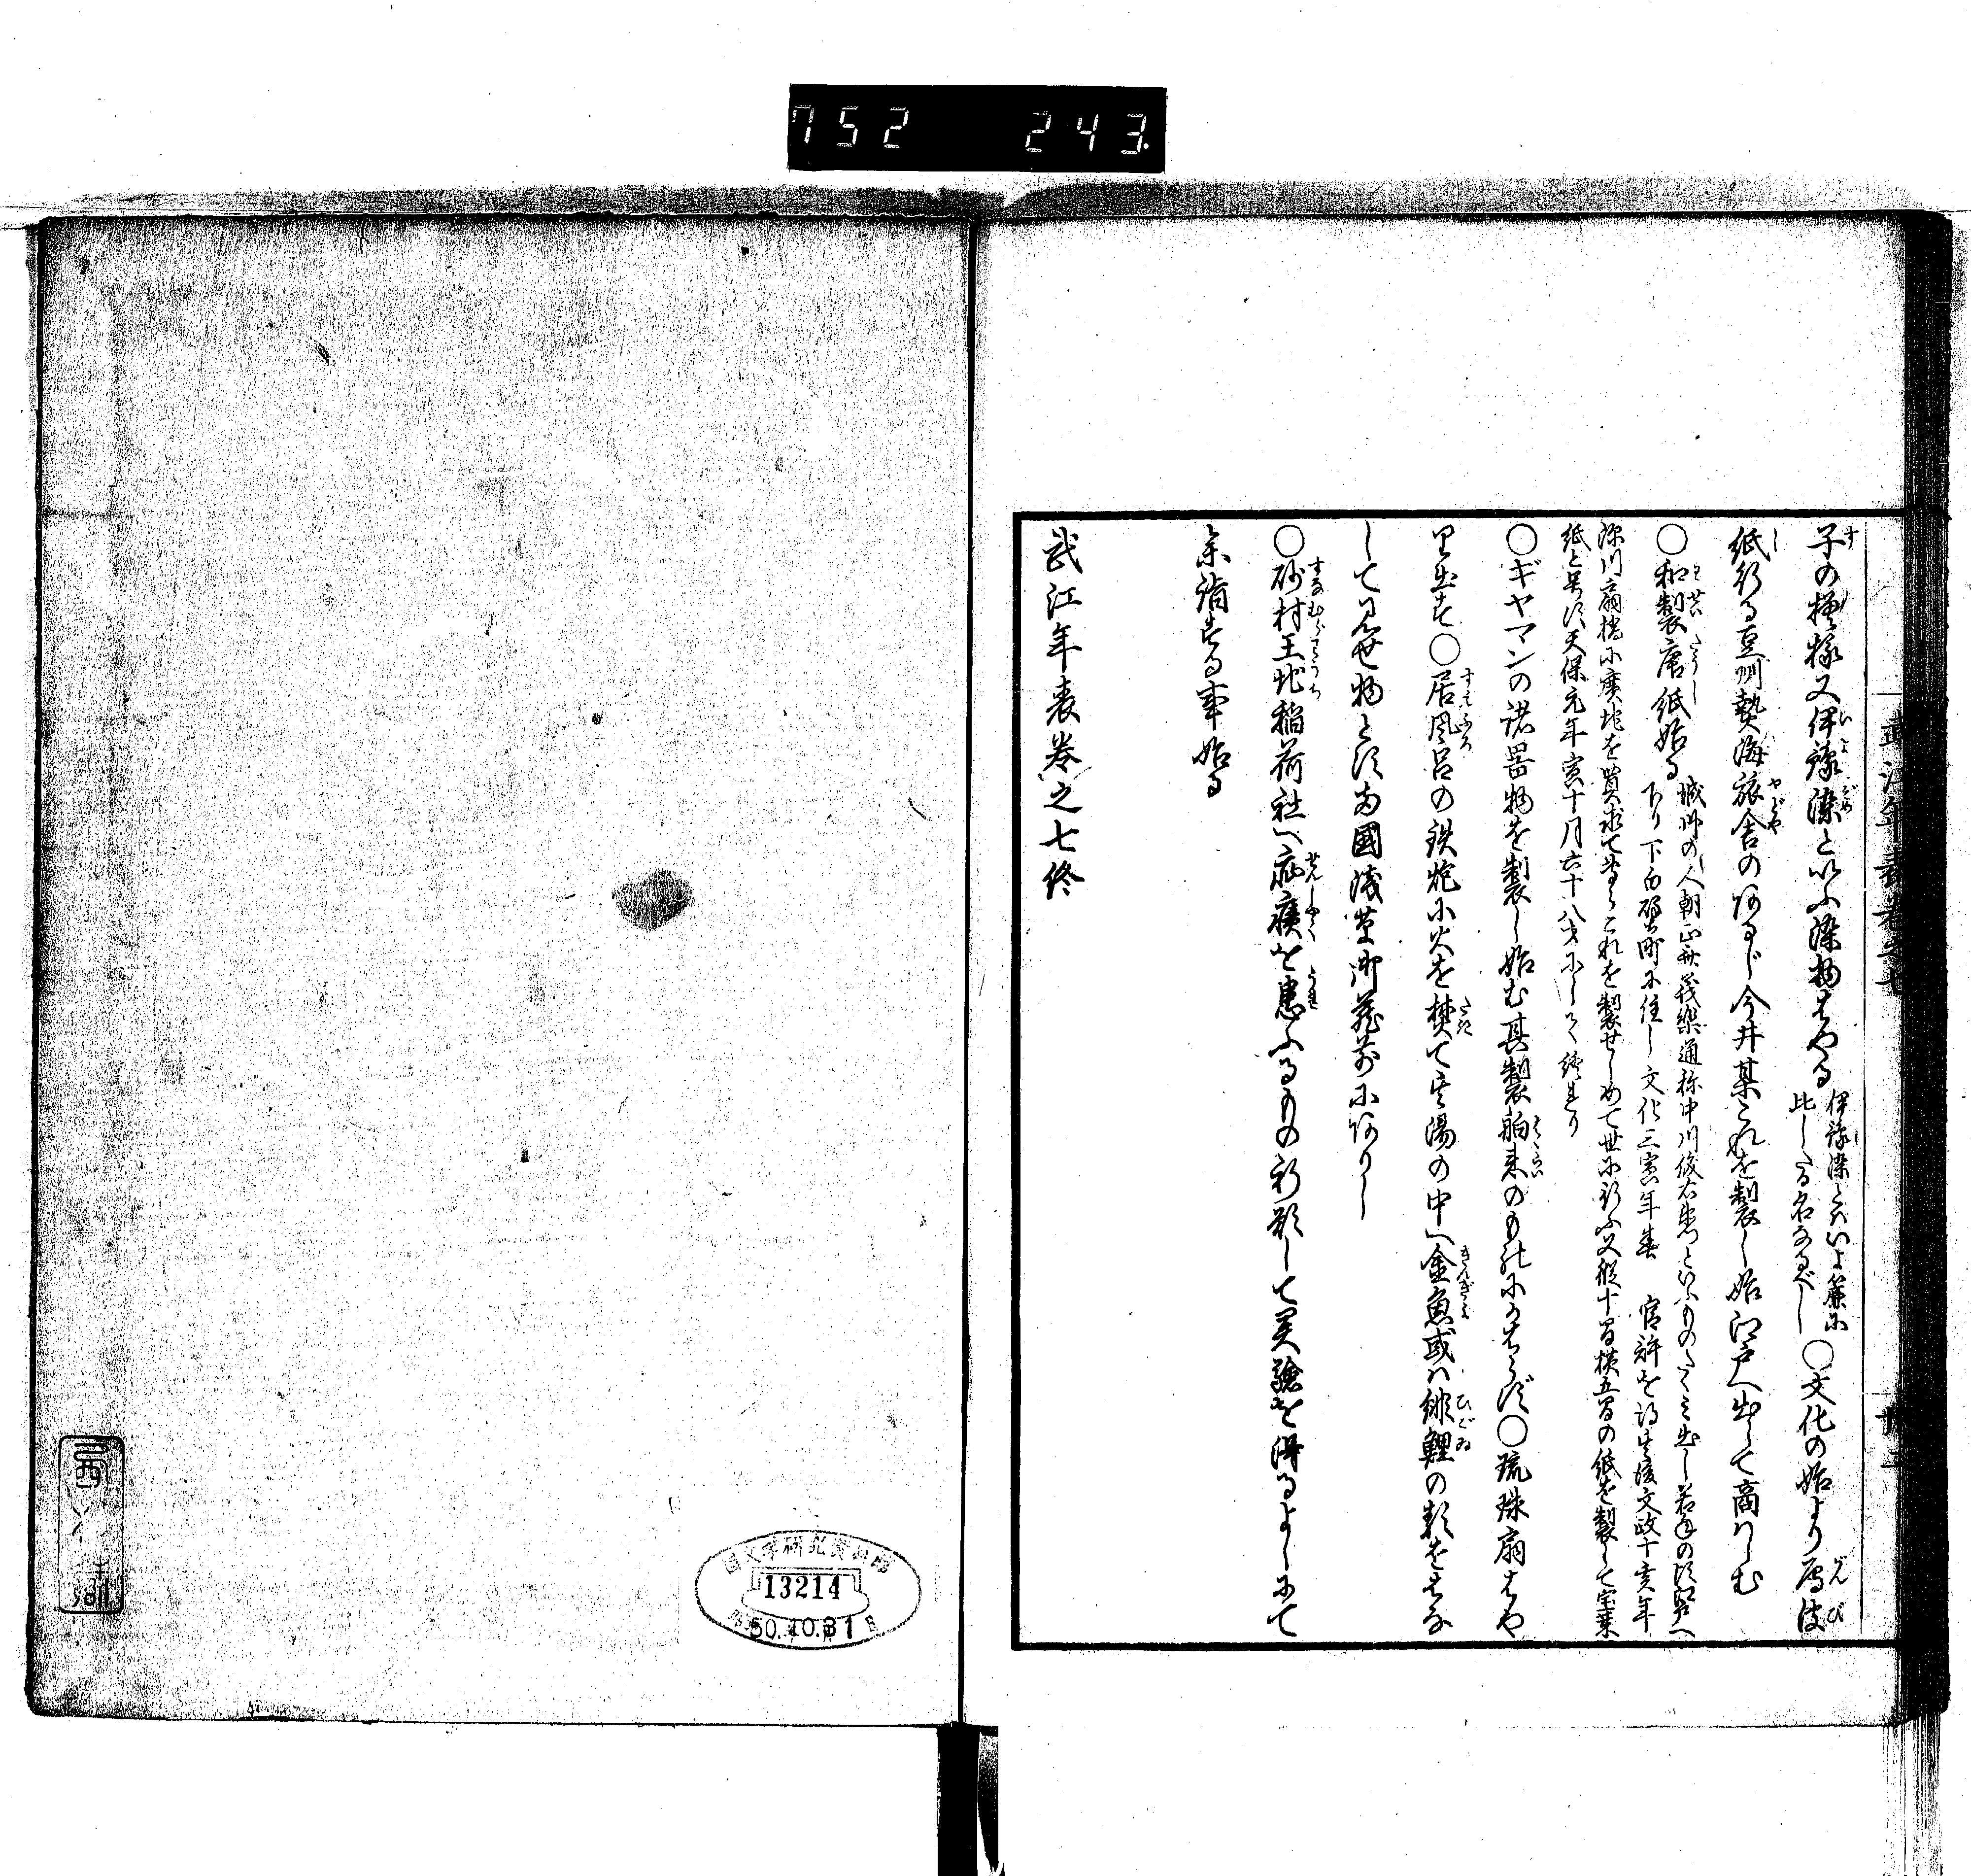 752 243.
子の模様又伊豫染といふ染物はやる 伊豫染とはいよ簾に
比したる名なるべし ○文化の始より雁皮
紙行る豆州熱海旅舎のあるじ今井某これを製し始江戸へ出して商はしむ
○和製唐紙始る 城州の人朝山 義樂通称中川儀右衛門といふものたくみ出し若年の頃江戸へ
下り下白壁町に住し文化三寅年春 官許を得其後文政十亥年
深川扇橋に廣地を買求て専らこれを製せしめて世に行ふ又縦十間横五間の紙を製して宝来
紙と号す天保元年寅十月六十八才にして終れり
○ギヤマンの諸器物を製し始む其製舶来のものにかはらず○琉球扇はや
り出す○居風呂の鉄炮に火を焚て其湯の中へ金魚或は緋鯉の類をはな
して見せ物とす両國浅草御蔵前にありし
○砂村王地稲荷社へ疝癪を患ふるもの祈願して美驗を得るよしにて
参詣する事始る
武江年表巻之七終
13214
50.10.31